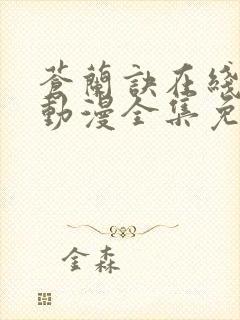 蒼蘭訣在綫
動漫全集免
金森